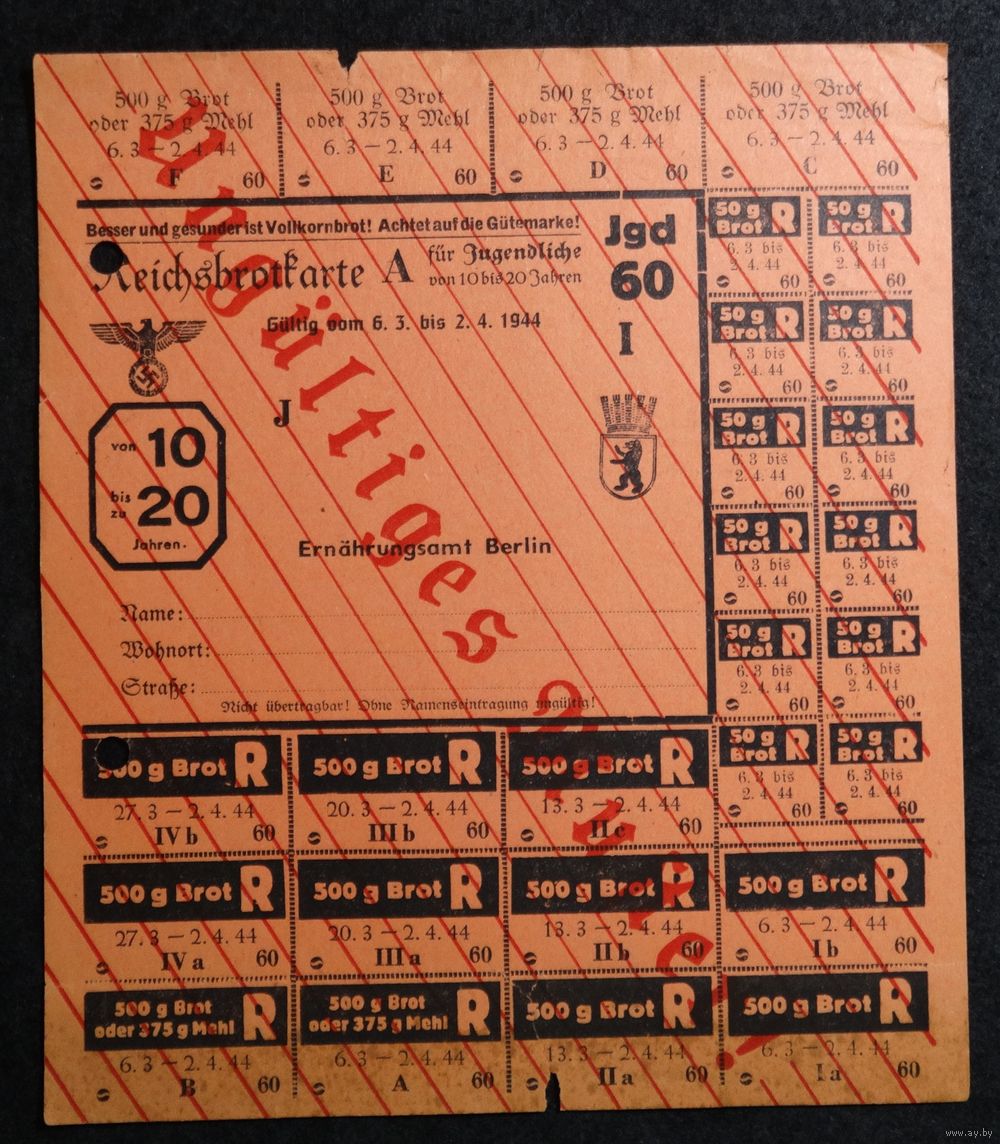 500 g Brot
oder 375 g Mehl
6. 3 — 2. 4. 44
F 60
500 g Brot
oder 375 g Mehl
6. 3 — 2. 4. 44
E 60
500 g Brot
oder 375 g Mehl
6. 3 — 2. 4. 44
D 60
500 g Brot
oder 375 g Mehl
6. 3 — 2. 4. 44
C 60
Besser und gesunder ist Vollkornbrot! Achtet auf die Gütemarke!
Reichsbrotkarte A für Jugendliche
von 10 bis 20 Jahren
Jgd
60
I
Gültig vom 6. 3. bis 2. 4. 1944
J
von 10
bis zu 20
Jahren.
Ernährungsamt Berlin
Name:
Wohnort:
Straße:
Nicht übertragbar! Ohne Namenseintragung ungültig!
Ungültiges Muster!
50 g Brot R
6. 3 bis
2. 4. 44
60
50 g Brot R
6. 3 bis
2. 4. 44
60
50 g Brot R
6. 3 bis
2. 4. 44
60
50 g Brot R
6. 3 bis
2. 4. 44
60
50 g Brot R
6. 3 bis
2. 4. 44
60
50 g Brot R
6. 3 bis
2. 4. 44
60
50 g Brot R
6. 3 bis
2. 4. 44
60
50 g Brot R
6. 3 bis
2. 4. 44
60
50 g Brot R
6. 3 bis
2. 4. 44
60
50 g Brot R
6. 3 bis
2. 4. 44
60
50 g Brot R
6. 3 bis
2. 4. 44
60
50 g Brot R
6. 3 bis
2. 4. 44
60
500 g Brot R
27. 3 — 2. 4. 44
IV b 60
500 g Brot R
20. 3 — 2. 4. 44
III b 60
500 g Brot R
13. 3 — 2. 4. 44
II c 60
500 g Brot R
27. 3 — 2. 4. 44
IV a 60
500 g Brot R
20. 3 — 2. 4. 44
III a 60
500 g Brot R
13. 3 — 2. 4. 44
II b 60
500 g Brot R
6. 3 — 2. 4. 44
I b 60
500 g Brot
oder 375 g Mehl R
6. 3 — 2. 4. 44
B 60
500 g Brot
oder 375 g Mehl R
6. 3 — 2. 4. 44
A 60
500 g Brot R
13. 3 — 2. 4. 44
II a 60
500 g Brot R
6. 3 — 2. 4. 44
I a 60
www.ay.by